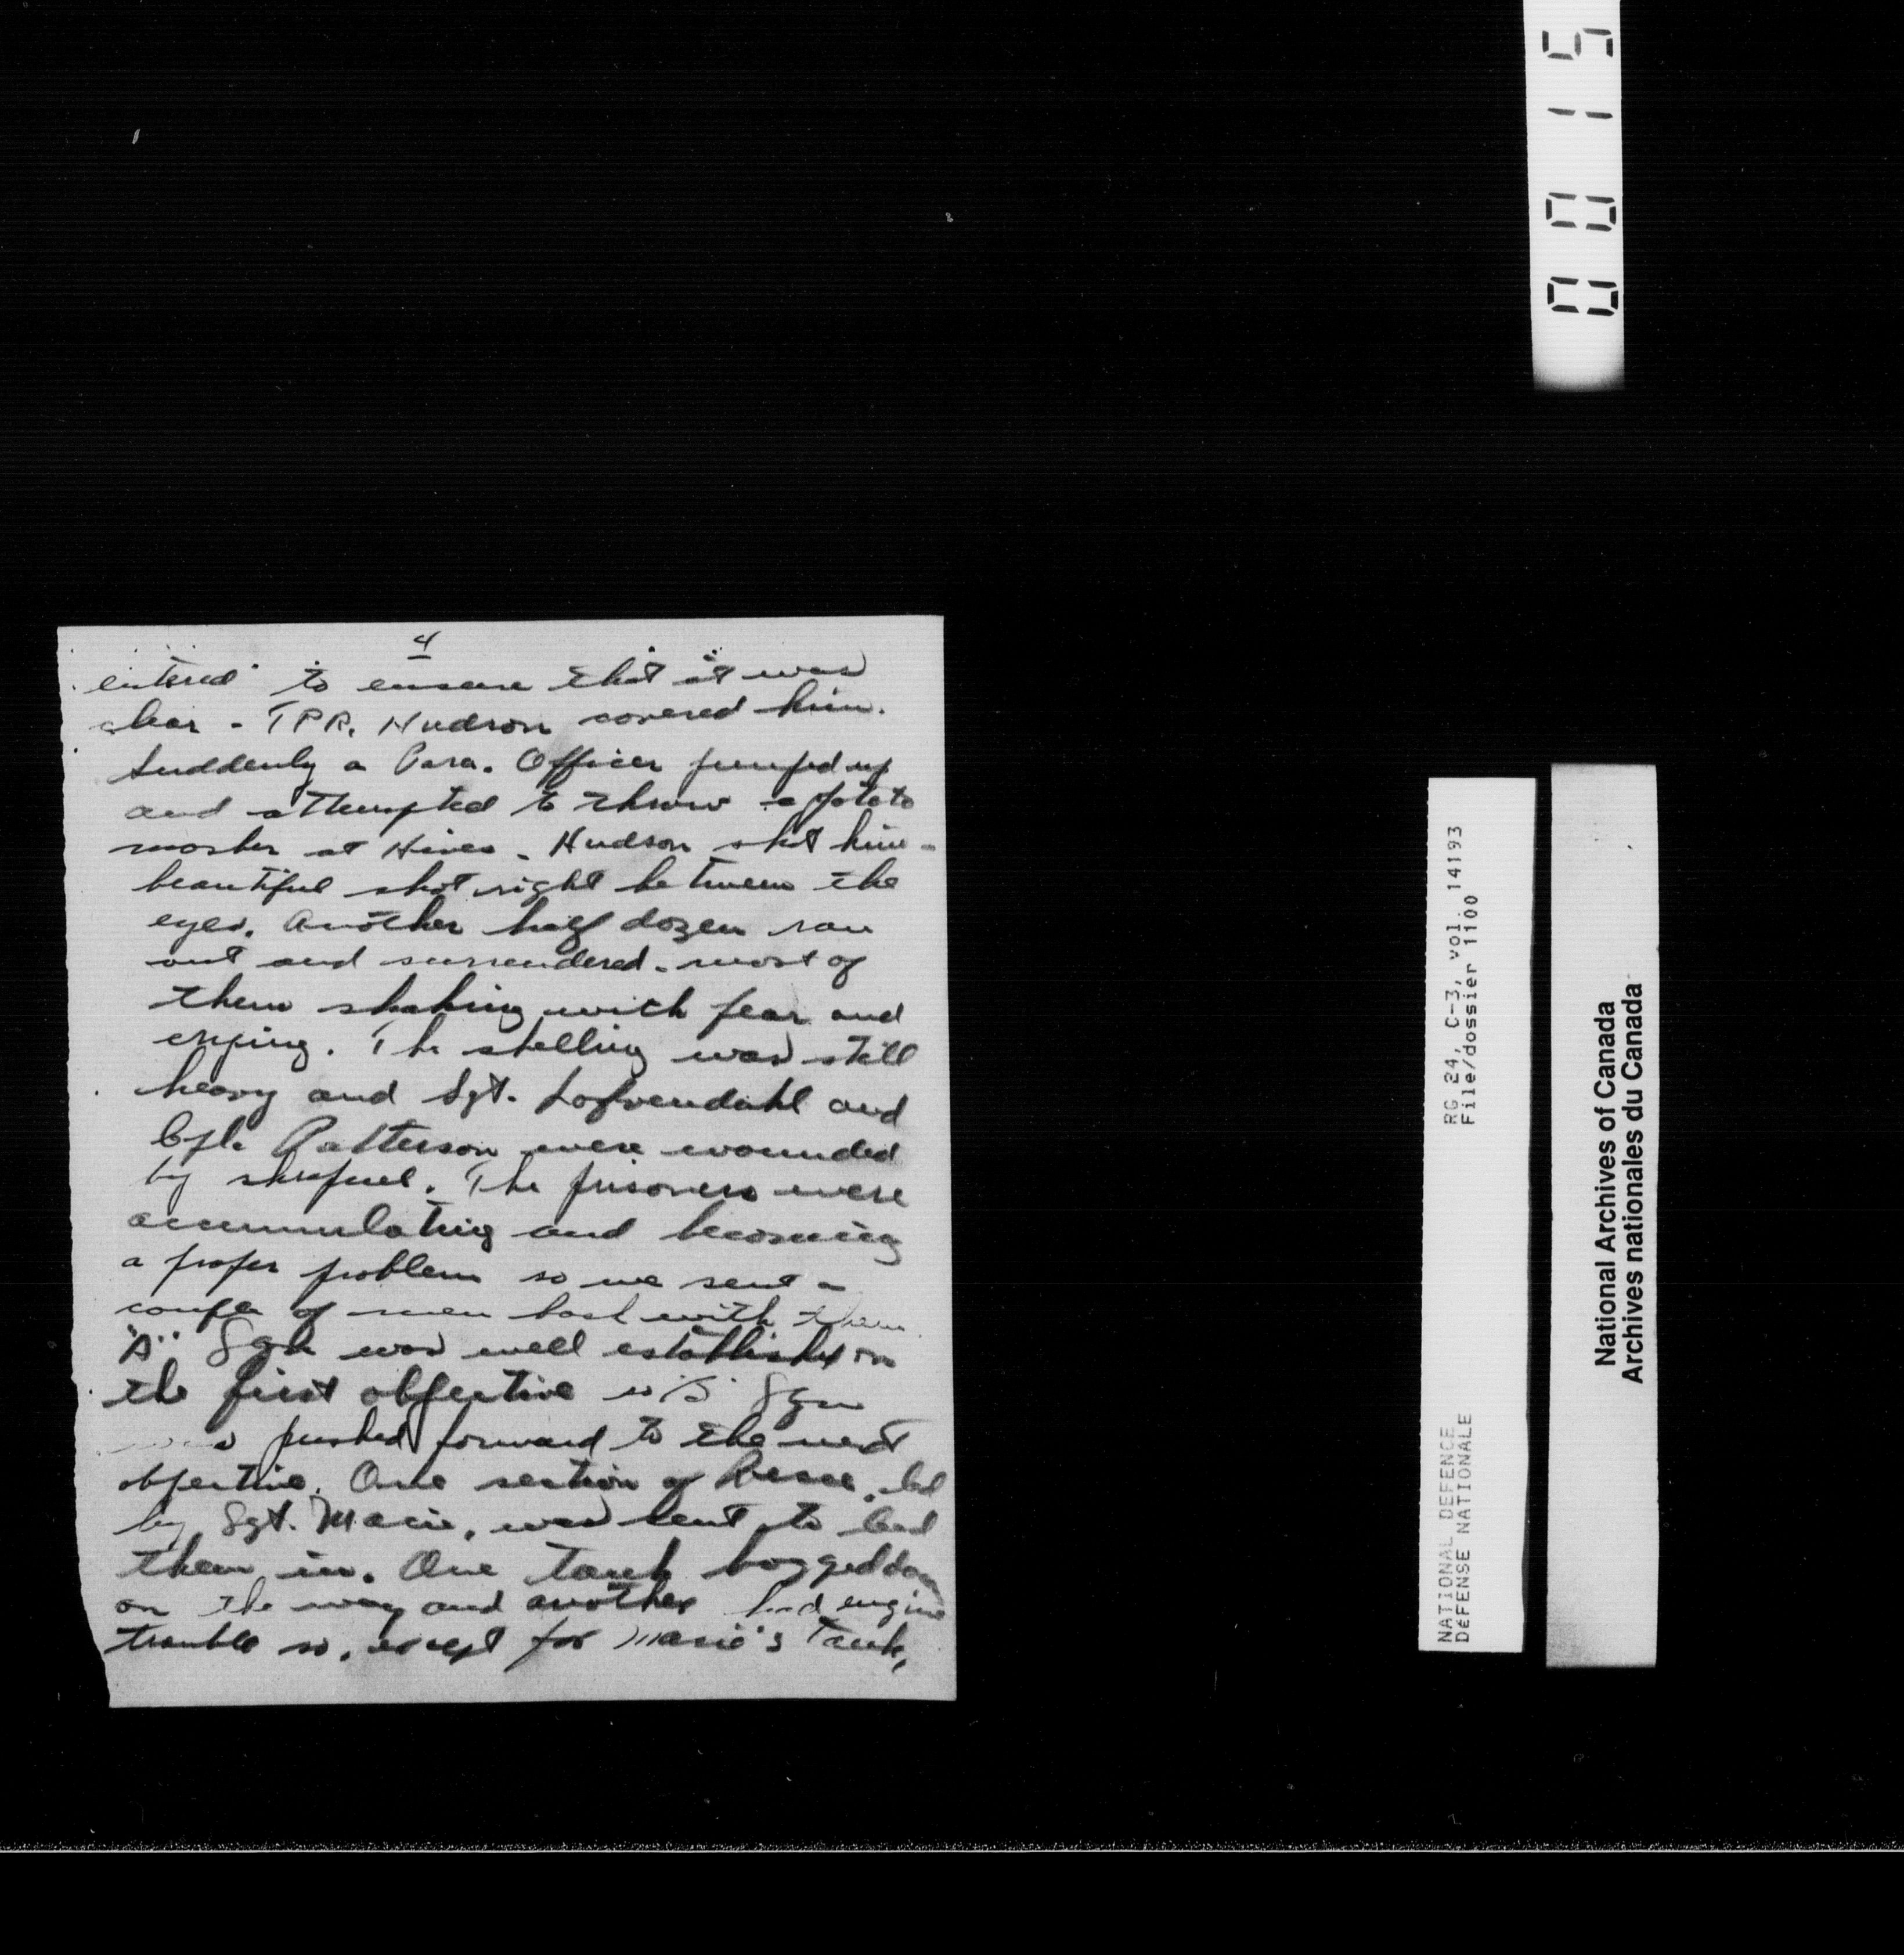 4
entered to ensure that it was
clear - TPR. Hudson covered him.
Suddenly a Para. Officer jumped up
and attempted to throw a potato
masher at Hives - Hudson shot him -
beautiful shot right between the
eyes. Another half dozen ran
out and surrendered - most of
them shaking with fear and
crying. The shelling was still
heavy and Sgt. Lofvendahl and
Cpl. Patterson were wounded
by The prisoners were
accumulating and becoming
a proper problem so we sent a
couple of men back with them.
"A" Sqn was well established on
the first objective so "B" Sqn
was pushed forward to the next
objective. One section of Recce. led
by Sgt. Macie, was sent to lead
them in. One tank bogged down
on the way and another had engine
trouble so, except for Macie's Tank,
0015
RG 24, C-3, vol. 14193
File/dossier 1100
NATIONAL DEFENCE
DéFENSE NATIONALE
National Archives of Canada
Archives nationales du Canada